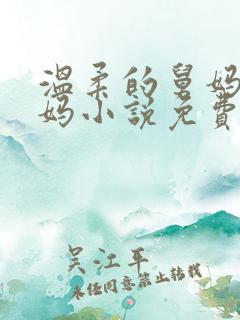 温柔的舅妈
妈小说免費
吴江平
未经同意禁止转载